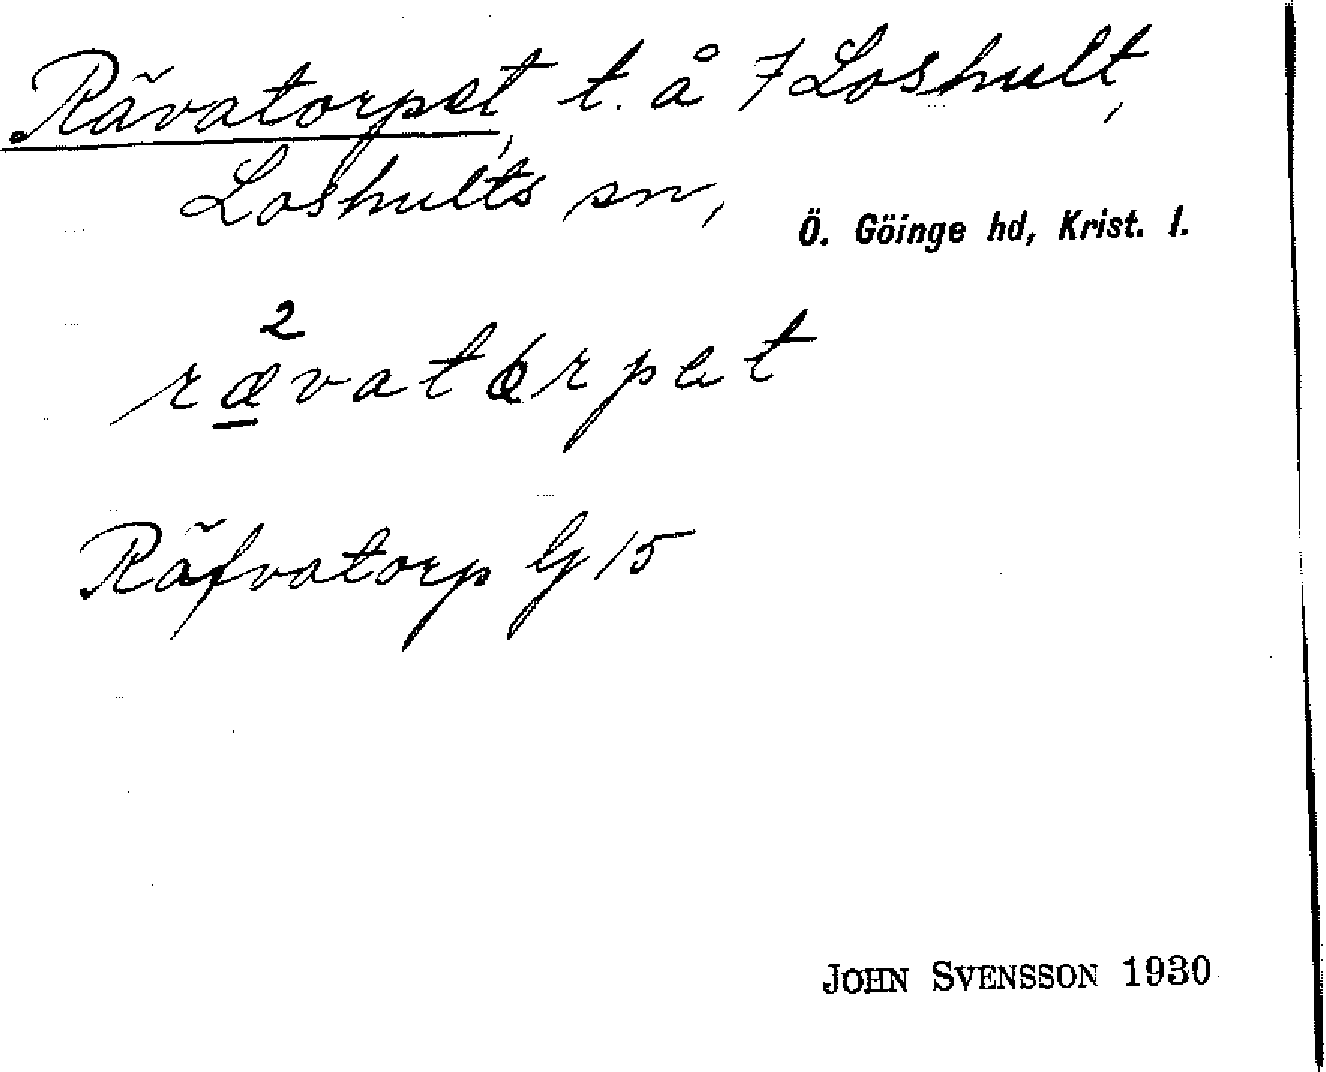 Rävatorpet, t. å 7 Loshult,
Loshults sn,
Ö. Göinge hd, Krist. l.
2
rævatorpet
Räfvatorp G 15
JOHN SVENSSON 1930